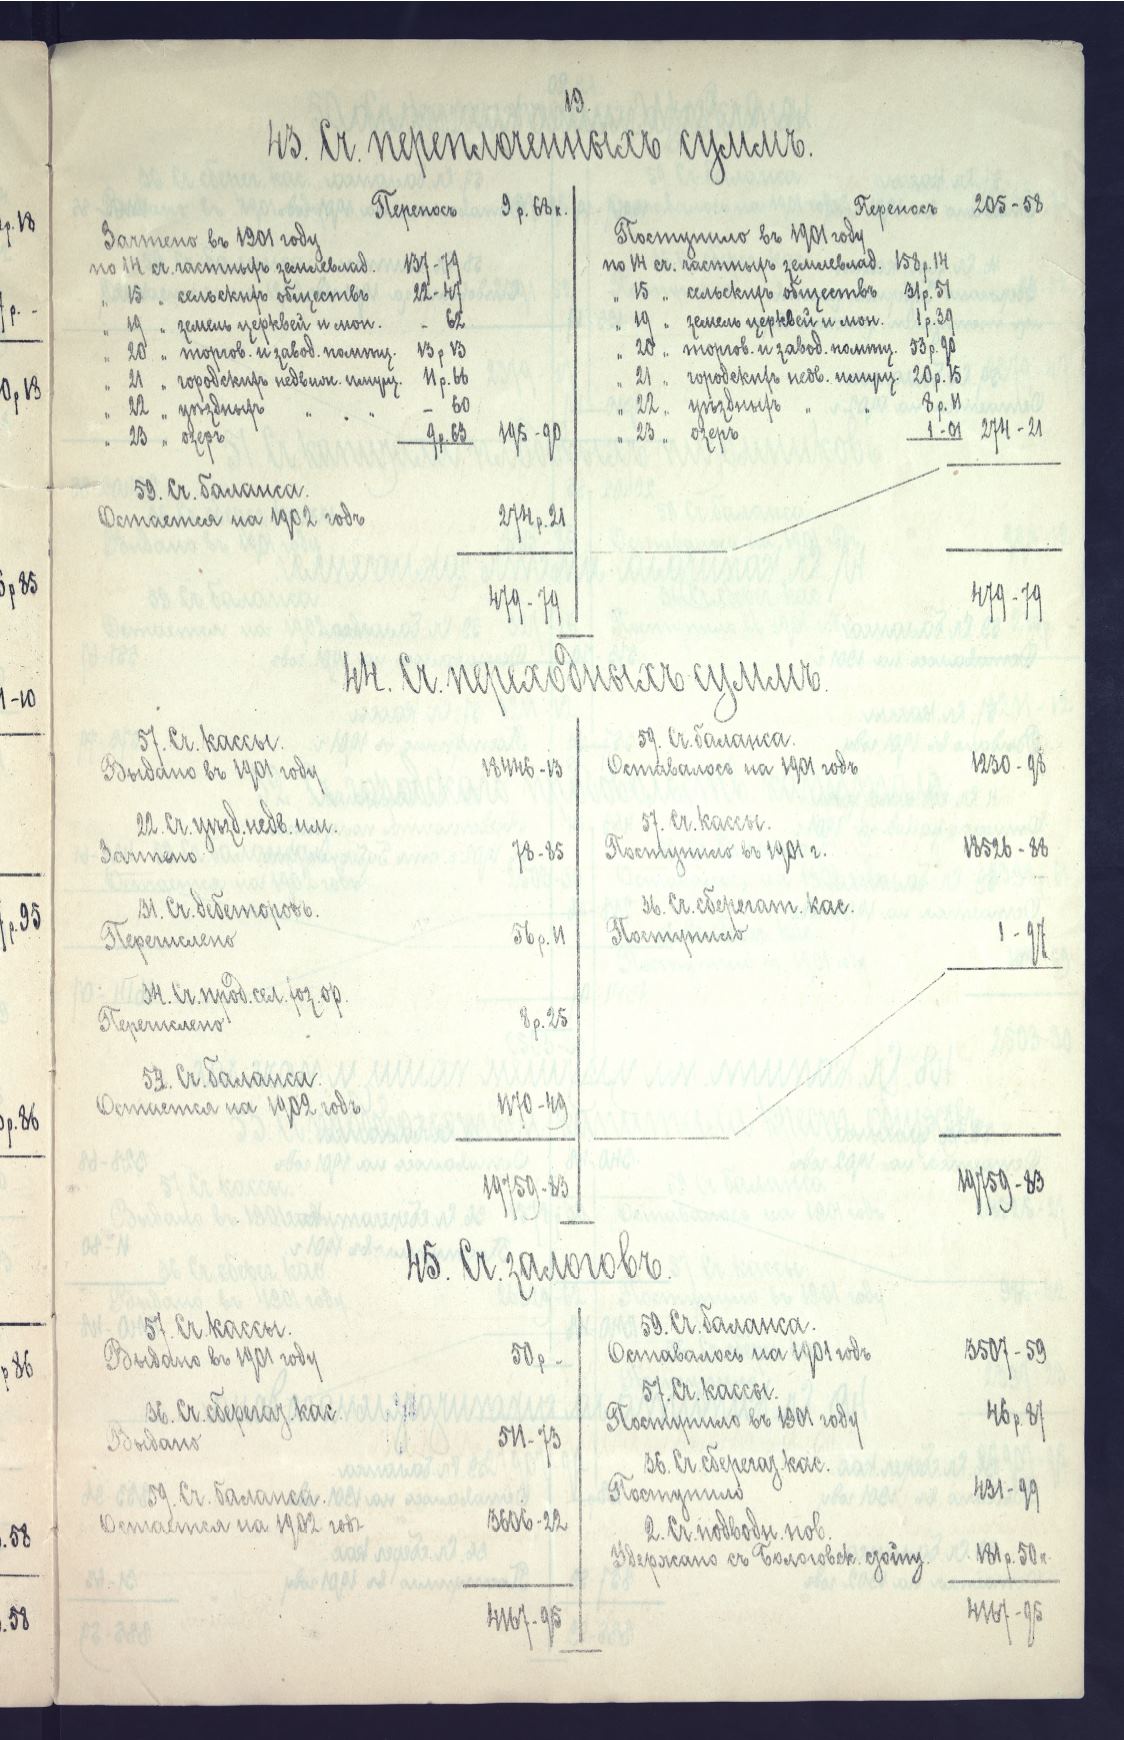 19.
43. Сч. переплоченныхъ суммъ.
Переносъ 9 р. 68 к.
Зачтено въ 1901 году
по 14 сч. частныхъ землевлад. 137-79
„ 15 „ сельскихъ обществъ 22-47
„ 19 „ земель церквей и мон. - 62
„ 20 „ торгов. и завод. помѣщ. 13 р 13
„ 21 „ городскихъ недвиж. имущ. 11 р. 66
„ 22 „ уѣздныхъ „ „ - 60
„ 23 „ озеръ 9 р. 63 195-90
59. Сч. баланса.
Остается на 1902 годъ 274 р. 21
479-79
Переносъ 205-58
Поступило въ 1901 году
по 14 сч. частныхъ землевлад. 158 р. 14
„ 15 „ сельскихъ обществъ 31 р. 51
„ 19 „ земель церквей и мон. 1 р. 39
„ 20 „ торгов. и завод. помѣщ. 53 р. 90
„ 21 „ городскихъ недв. имущ. 20 р. 15
„ 22 „ уѣздныхъ „ „ 8 р. 11
„ 23 „ озеръ 1-01 274-21
479-79
44. Сч. переходныхъ суммъ.
57. Сч. кассы.
Выдано въ 1901 году 18446-13
22. Сч. уѣзд. недв. им.
Зачтено 78-85
31. Сч. дебеторовъ.
Перечислено 56 р. 11
34. Сч. прод. сел. хоз. ор.
Перечислено 8 р. 25
59. Сч. баланса.
Остается на 1902 годъ 1170-49
19759-83
59. Сч. баланса.
Оставалось на 1901 годъ 1230-98
57. Сч. кассы.
Поступило въ 1901 г. 18526-88
36. Сч. сберегат. кас.
Поступило 1-97
19759-83
45. Сч. залоговъ.
57. Сч. кассы.
Выдано въ 1901 году 50 р. -
36. Сч. сберегат. кас.
Выдано 511-73
59. Сч. баланса.
Остается на 1902 годъ 3606-22
4167-95
59. Сч. баланса.
Оставалось на 1901 годъ 3507-59
57. Сч. кассы.
Поступило въ 1901 году 46 р. 87
36. Сч. сберегат. кас.
Поступило 431-99
2. Сч. подводн. пов.
Удержано съ Бологовск. сгойщ. 181 р. 50 к.
4167-95